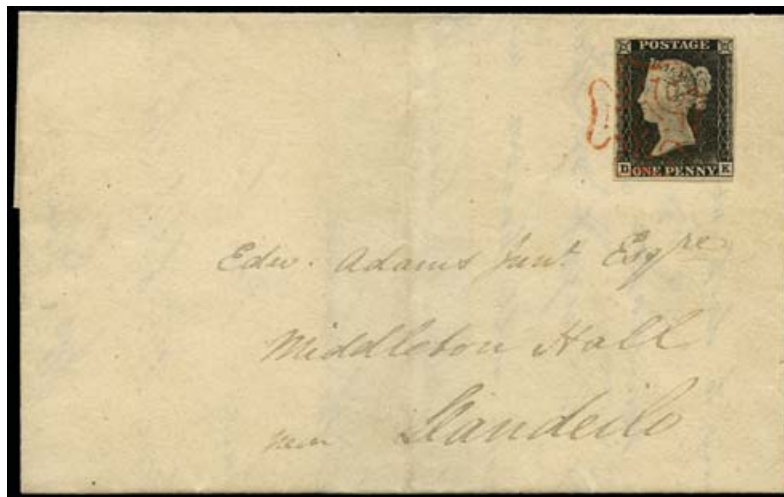 POSTAGE
D ONE PENNY K
Edw. Adams Junr. Esqre
Middleton Hall
near Llandeilo